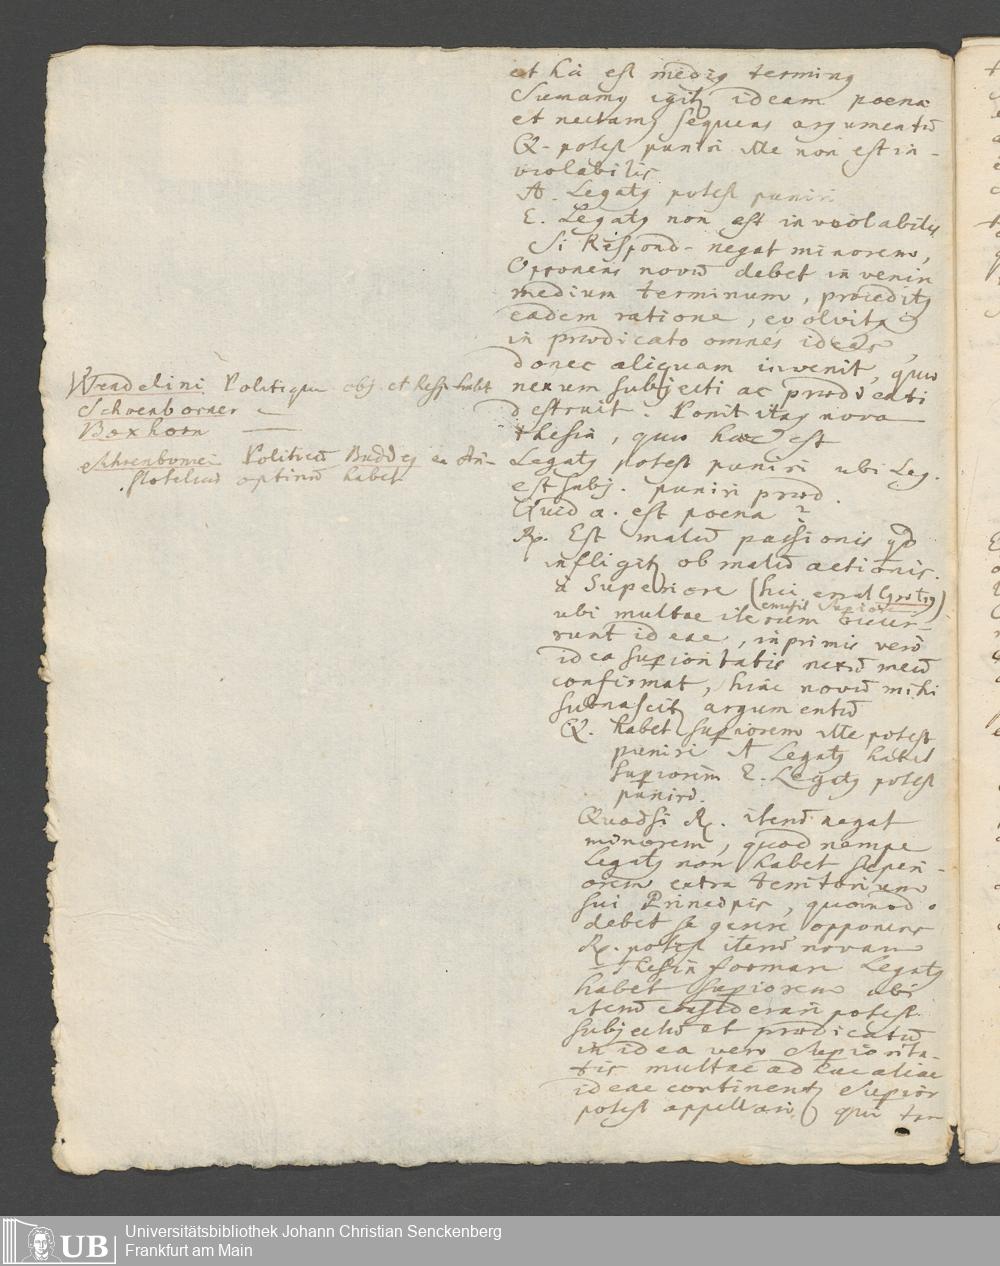 et hîc est mediꝯ terminꝯ
Sumamꝯ igitꝛ ideam poenæ
et nectamꝯ sequens argumentū
Q. potest puniri ille non est in-
violabilis
A. Legatꝯ potest puniri
E. Legatꝯ non est inviolabilis
Si Respond- negat minorem,
Opponens novū debet invenire
medium terminum, procedit
eadem ratione, evolvit
in prædicato omnes ideas,
donec aliquam invenit, quæ
nexum subjecti ac prædicati
destruit. Ponit itaq nova
thesin, quæ hæc est
Legatꝯ potest puniri ubi Leg.
est subj. puniri præd.
Quid a. est poena?
R. Est malū passionis qd
infligitꝛ ob malū actionis
à Superiore (hic errat Grotiꝯ)
emisit Supiore
ubi multae iterum occur-
runt ideae, inprimis verō
idea supioritatis nexū meū
confirmat, hinc novū mihi
subnascitꝛ argumentū
Q. habet supiorem ille potest
puniri A Legatꝯ habet
supiorem E. Legatꝯ potest
puniri.
Quodsi R. iterū negat
minorem, quod nempe
Legatꝯ non habet superi-
orem extra territorium
sui Principis, quomodo
debet se gerere opponens
R. potest iterū novam
thesin formare Legatꝯ
habet supiorem ubi
iterū considerari potest
subjectū et prædicatū
in idea vero Supiorita-
tis multae adhuc aliae
ideae continentꝛ Supior
potest appellari, qui ter
Wendelini Politique obj. et Resp habet
Schoenborner —
Boxhorn —
Schoenborneri Politicū Buddeꝯ ex Ari-
stotelicis optimū habet
Universitätsbibliothek Johann Christian Senckenberg
Frankfurt am Main
UB